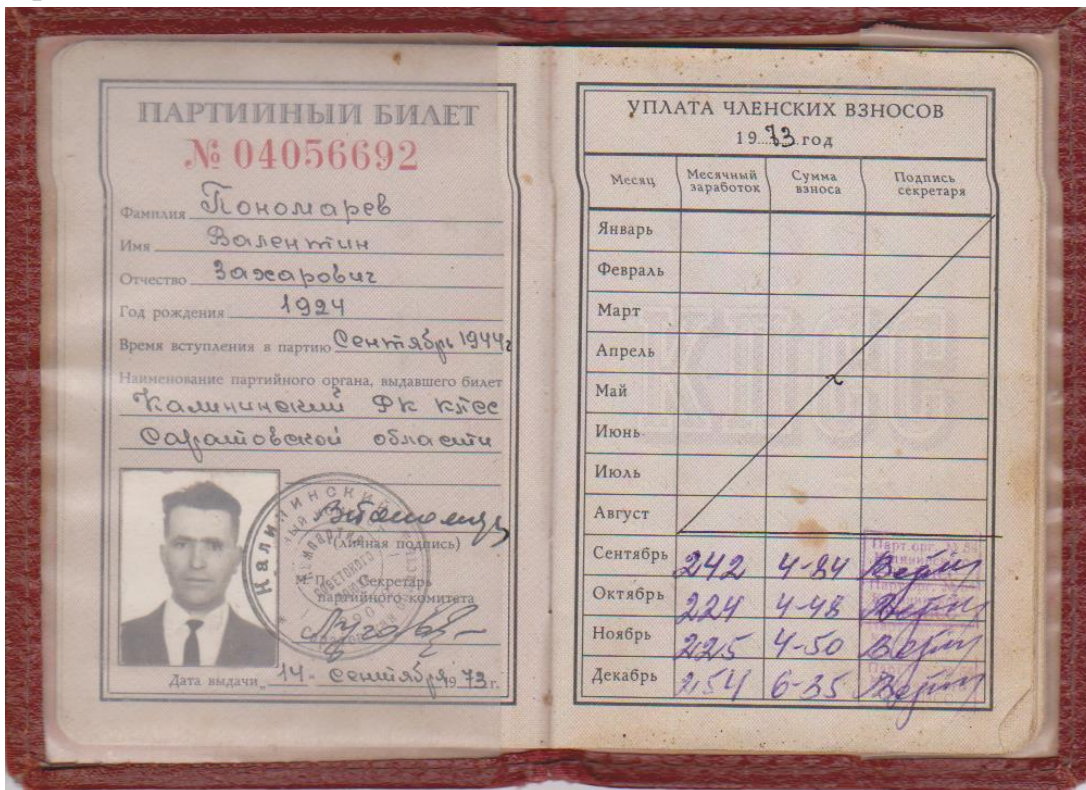 ПАРТИЙНЫЙ БИЛЕТ
№ 04056692
Фамилия Пономарев
Имя Валентин
Отчество Захарович
Год рождения 1924
Время вступления в партию Сентябрь 1944г
Наименование партийного органа, выдавшего билет
Калининский РК КПСС
Саратовской области
(личная подпись)
М. П. Секретарь
партийного комитета
Дата выдачи „14“ сентября 1973 г.
УПЛАТА ЧЛЕНСКИХ ВЗНОСОВ
1973 год
Месяц Месячный заработок Сумма взноса Подпись секретаря
Январь
Февраль
Март
Апрель
Май
Июнь
Июль
Август
Сентябрь 242 4-84
Октябрь 224 4-48
Ноябрь 225 4-50
Декабрь 254 6-35